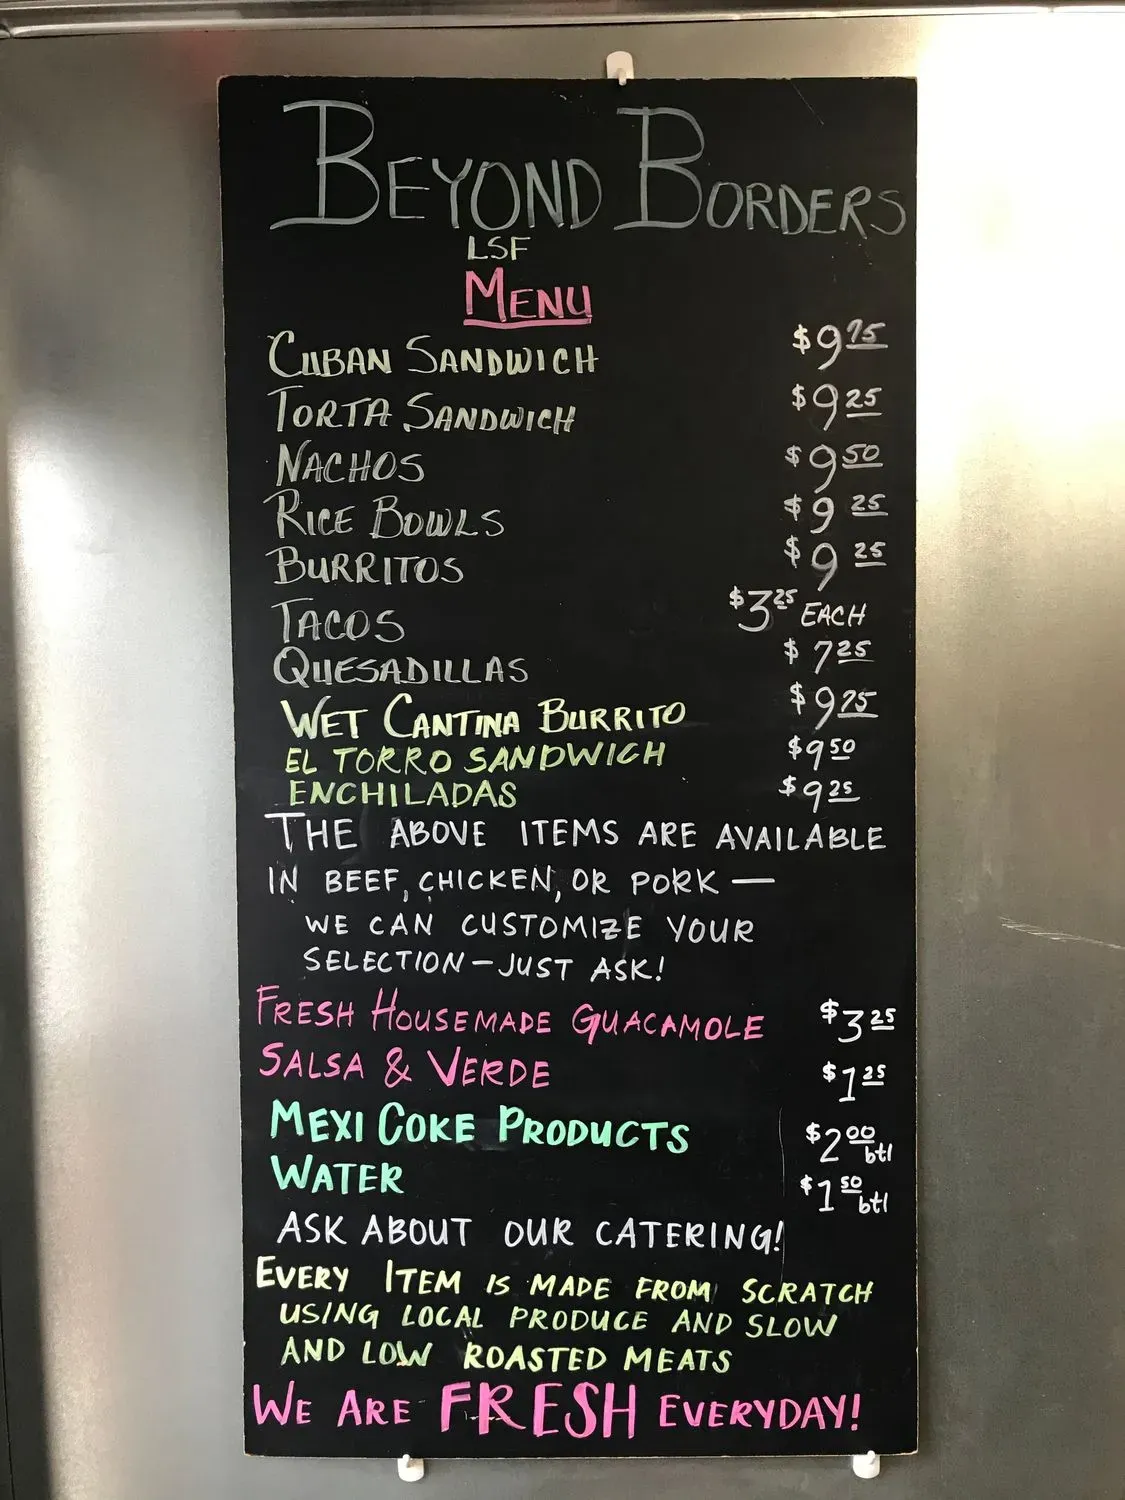 BEYOND BORDERS
LSF
MENU
CUBAN SANDWICH $9.75
TORTA SANDWICH $9.25
NACHOS $9.50
RICE BOWLS $9.25
BURRITOS $9.25
TACOS $3.25 EACH
QUESADILLAS $7.25
WET CANTINA BURRITO $9.75
EL TORRO SANDWICH $9.50
ENCHILADAS $9.25
THE ABOVE ITEMS ARE AVAILABLE
IN BEEF, CHICKEN, OR PORK —
WE CAN CUSTOMIZE YOUR
SELECTION — JUST ASK!
FRESH HOUSEMADE GUACAMOLE $3.25
SALSA & VERDE $1.25
MEXI COKE PRODUCTS $2.00 btl
WATER $1.50 btl
ASK ABOUT OUR CATERING!
EVERY ITEM IS MADE FROM SCRATCH
USING LOCAL PRODUCE AND SLOW
AND LOW ROASTED MEATS
WE ARE FRESH EVERYDAY!